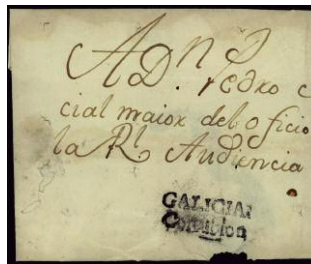 A Dⁿ Pedro
cial maior del oficio
la Rˡ Audiencia
GALICIA
Corcubion